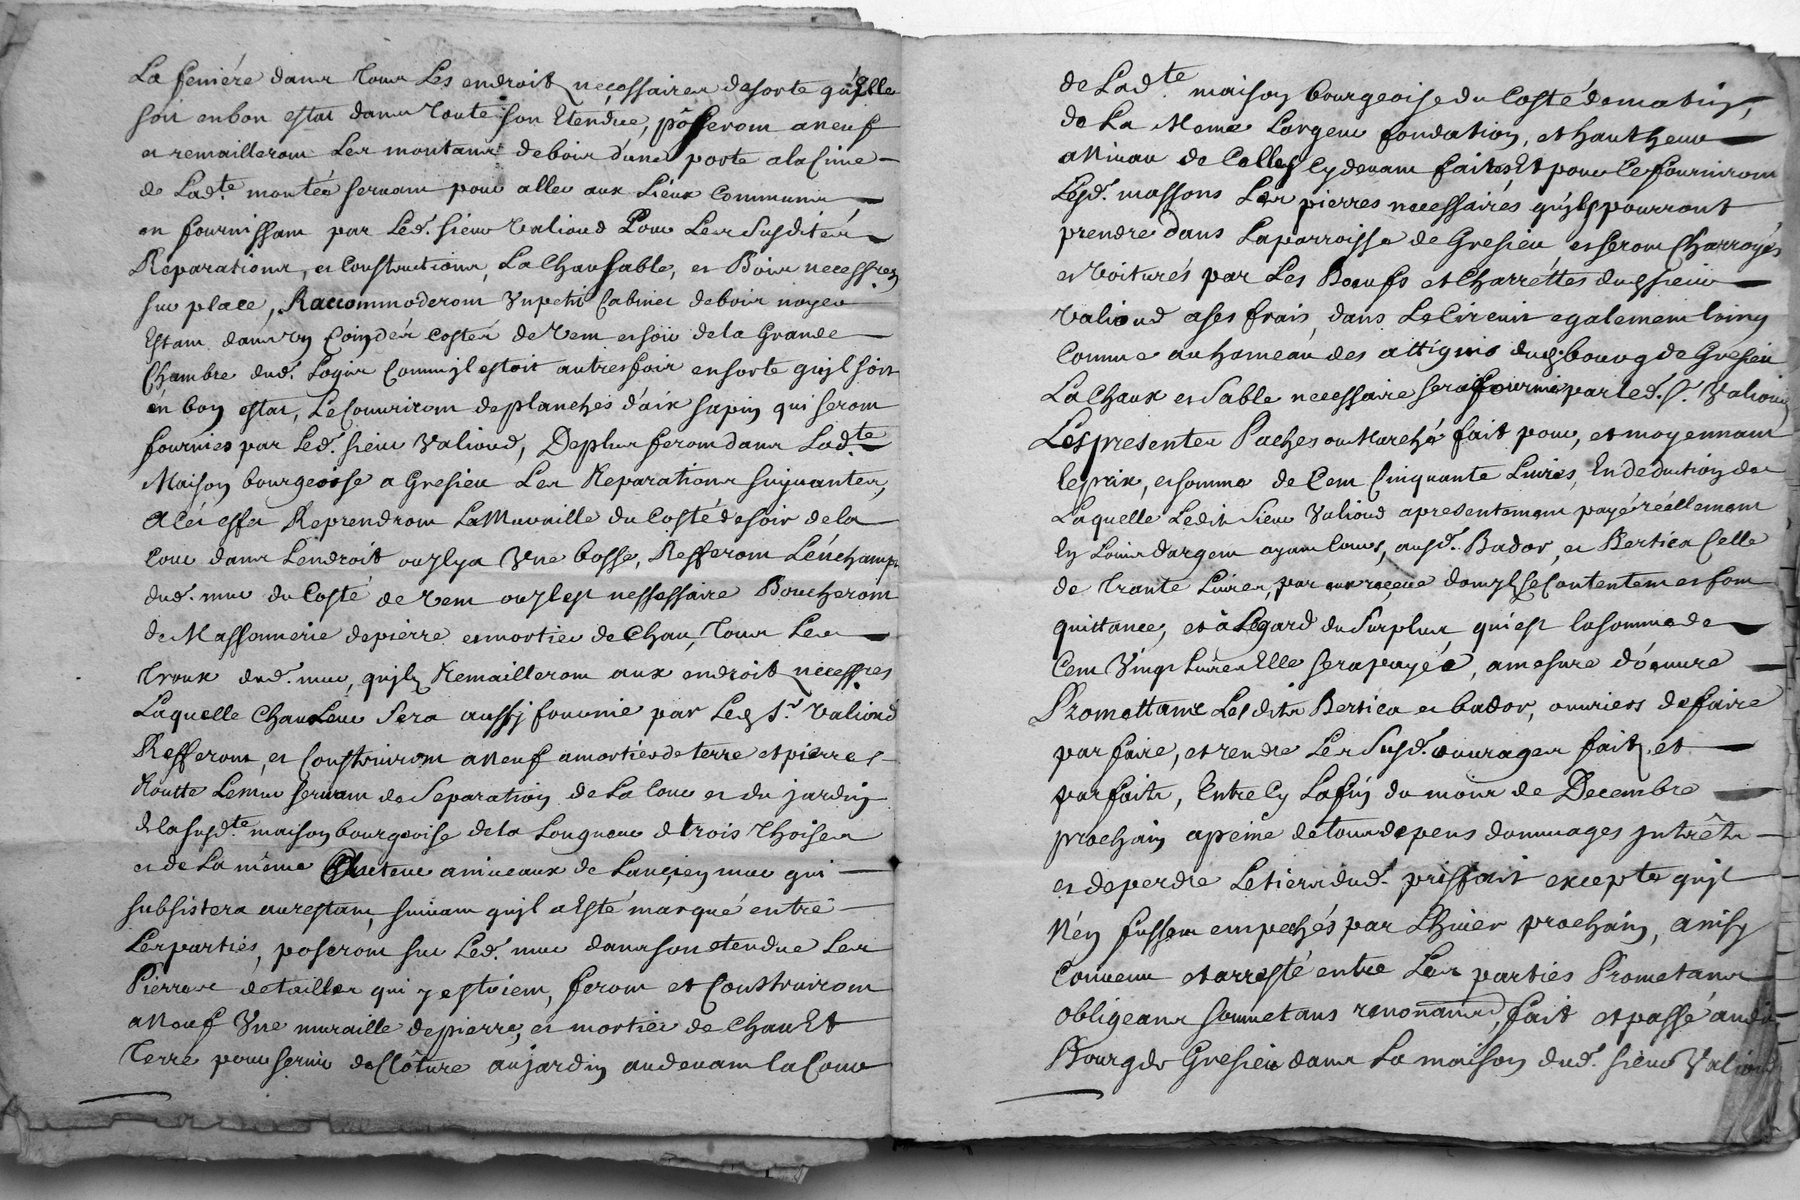 La feniére dans tous Les endroits necessaires desorte qu'elle
soit en bon estat dans toute son Etendüe, pôseront aneuf
et remailleront Les montans debois d'une porte alacime
de Lad.te montéé servant pour aller aux Lieux Communs,
en fournissant par Led. sieur Valioud Pour Les Susdites
Reparations, et Constructions, La Chau sable, et Bois necessres
sur place, Raccommoderont Vn petit Cabinet debois noyer
Estant dans Vn Coin des Costés de Vent et soir dela Grande
Chambre dud. Logis Comm'jl estoit autresfois ensorte qu'jl soit
en bon estat, Le Couvriront deplanches d'aix sapin qui seront
fournies par Led. sieur Valioud, Deplus feront dans Lad.te
Maison bourgeoise a Gresieu Les Reparations suiuantes,
A Cés effet Reprendront La Muraille du Costé desoir dela
Cour dans Lendroit ou jl y a Vne bosse, Refferont Leuchamp
dud. mur du Costé de Vent ou jl est nessessaire Boucheront
de Massonnerie depierre et mortier de Chau, Tous Les
Troux dud. mur, qu'jls Remailleront aux endroits necessres
Laquelle Chau Leur Sera aussj fournie par Led. S.r Valioud
Refferont, et Construiront aneuf a mortier de terre et pierres
Routte Lemur servant de Separation de La Cour et du jardin
dela susd.te maison bourgeoise dela Longueur de trois Thoises
et de La même hauteur aniueaux de Lancien mur qui
subsistera aurestant, suiuant qu'jl a Esté marqué entre
Les parties, poseront sur Led. mur dans son etendue Les
Pierres detailles qui y estoient, feront et Construiront
aNeuf Vne muraille depierre, et mortier de Chau Et
Terre pour servir de Clôture au jardin au deuant la Cour
de Lad.te maison bourgeoise du Costé de matin,
de La Meme Largeur fondation, et hautheur
aNiuau de Celles Cy deuant faites Et pour Ce fourniront
Lesd. massons Les pierres necessairés qu'jls pourront
prendre dans Laparroisse de Gresieu, et seront Charroyés
et Voiturés par Les Boeufs et Charrettes dud sieur
Valioud a ses frais, dans Le Circuit egalement Loing
Comme au hameau des attignis dud. bourg de Gresieu
La Chaux et Sable necessaire sera fournie par led. S.r Valioud
Les presentes Paches ou Marché fait pour, et moyennant
leprix, et somme de Cent Cinquante Liures, En deduction de
Laquelle Ledit Sieur Valioud apresentement payé réellement
En Louis dargent ayant Cours, ausd. Bador, et Bertier Celle
de trante Liures, par eux reçeue dont jls se Contentent et font
quittance, et à L'égard du Surplus qui est la somme de
Cent Vingt Liures Elle sera payéé, a mesure d'oeuure
Promettant Lesdits Bertier et bador, ouuriers defaire
parfaire, et rendre Les Susd. ouurages faits, et
parfaits, Entre Cy La fin du mois de Decembre
prochain apeine de tous depens dommages jntrêts
et de perdre Le tiers dud. prisfait excepté qu'jls
N'en fussent empechés par L'hiuer prochain, ainsy
Conuenu et arresté entre Les parties Prometans
obligeans soumetans renonans, fait et passé aud.
Bourg de Gresieu dans La maison dud. sieur Valioud